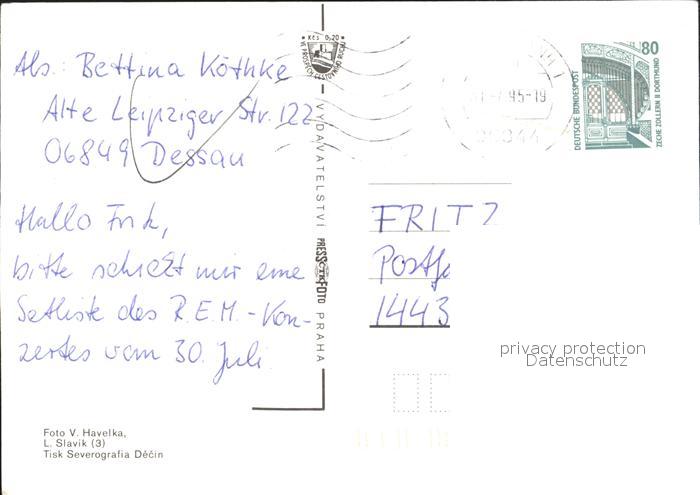 Abs.: Bettina Köthke
Alte Leipziger Str. 122
06849 Dessau
Hallo Fritz,
bitte schickt mir eine
Setliste des R.E.M.-Kon-
zertes vom 30. Juli
Foto V. Havelka,
L. Slavík (3)
Tisk Severografia Děčín
Kčs 0,20
VYDAVATELSTVÍ PRESSFOTO PRAHA
-7.95-19
80
DEUTSCHE BUNDESPOST
ZECHE ZOLLERN II DORTMUND
FRITZ
Postf
1443
privacy protection
Datenschutz